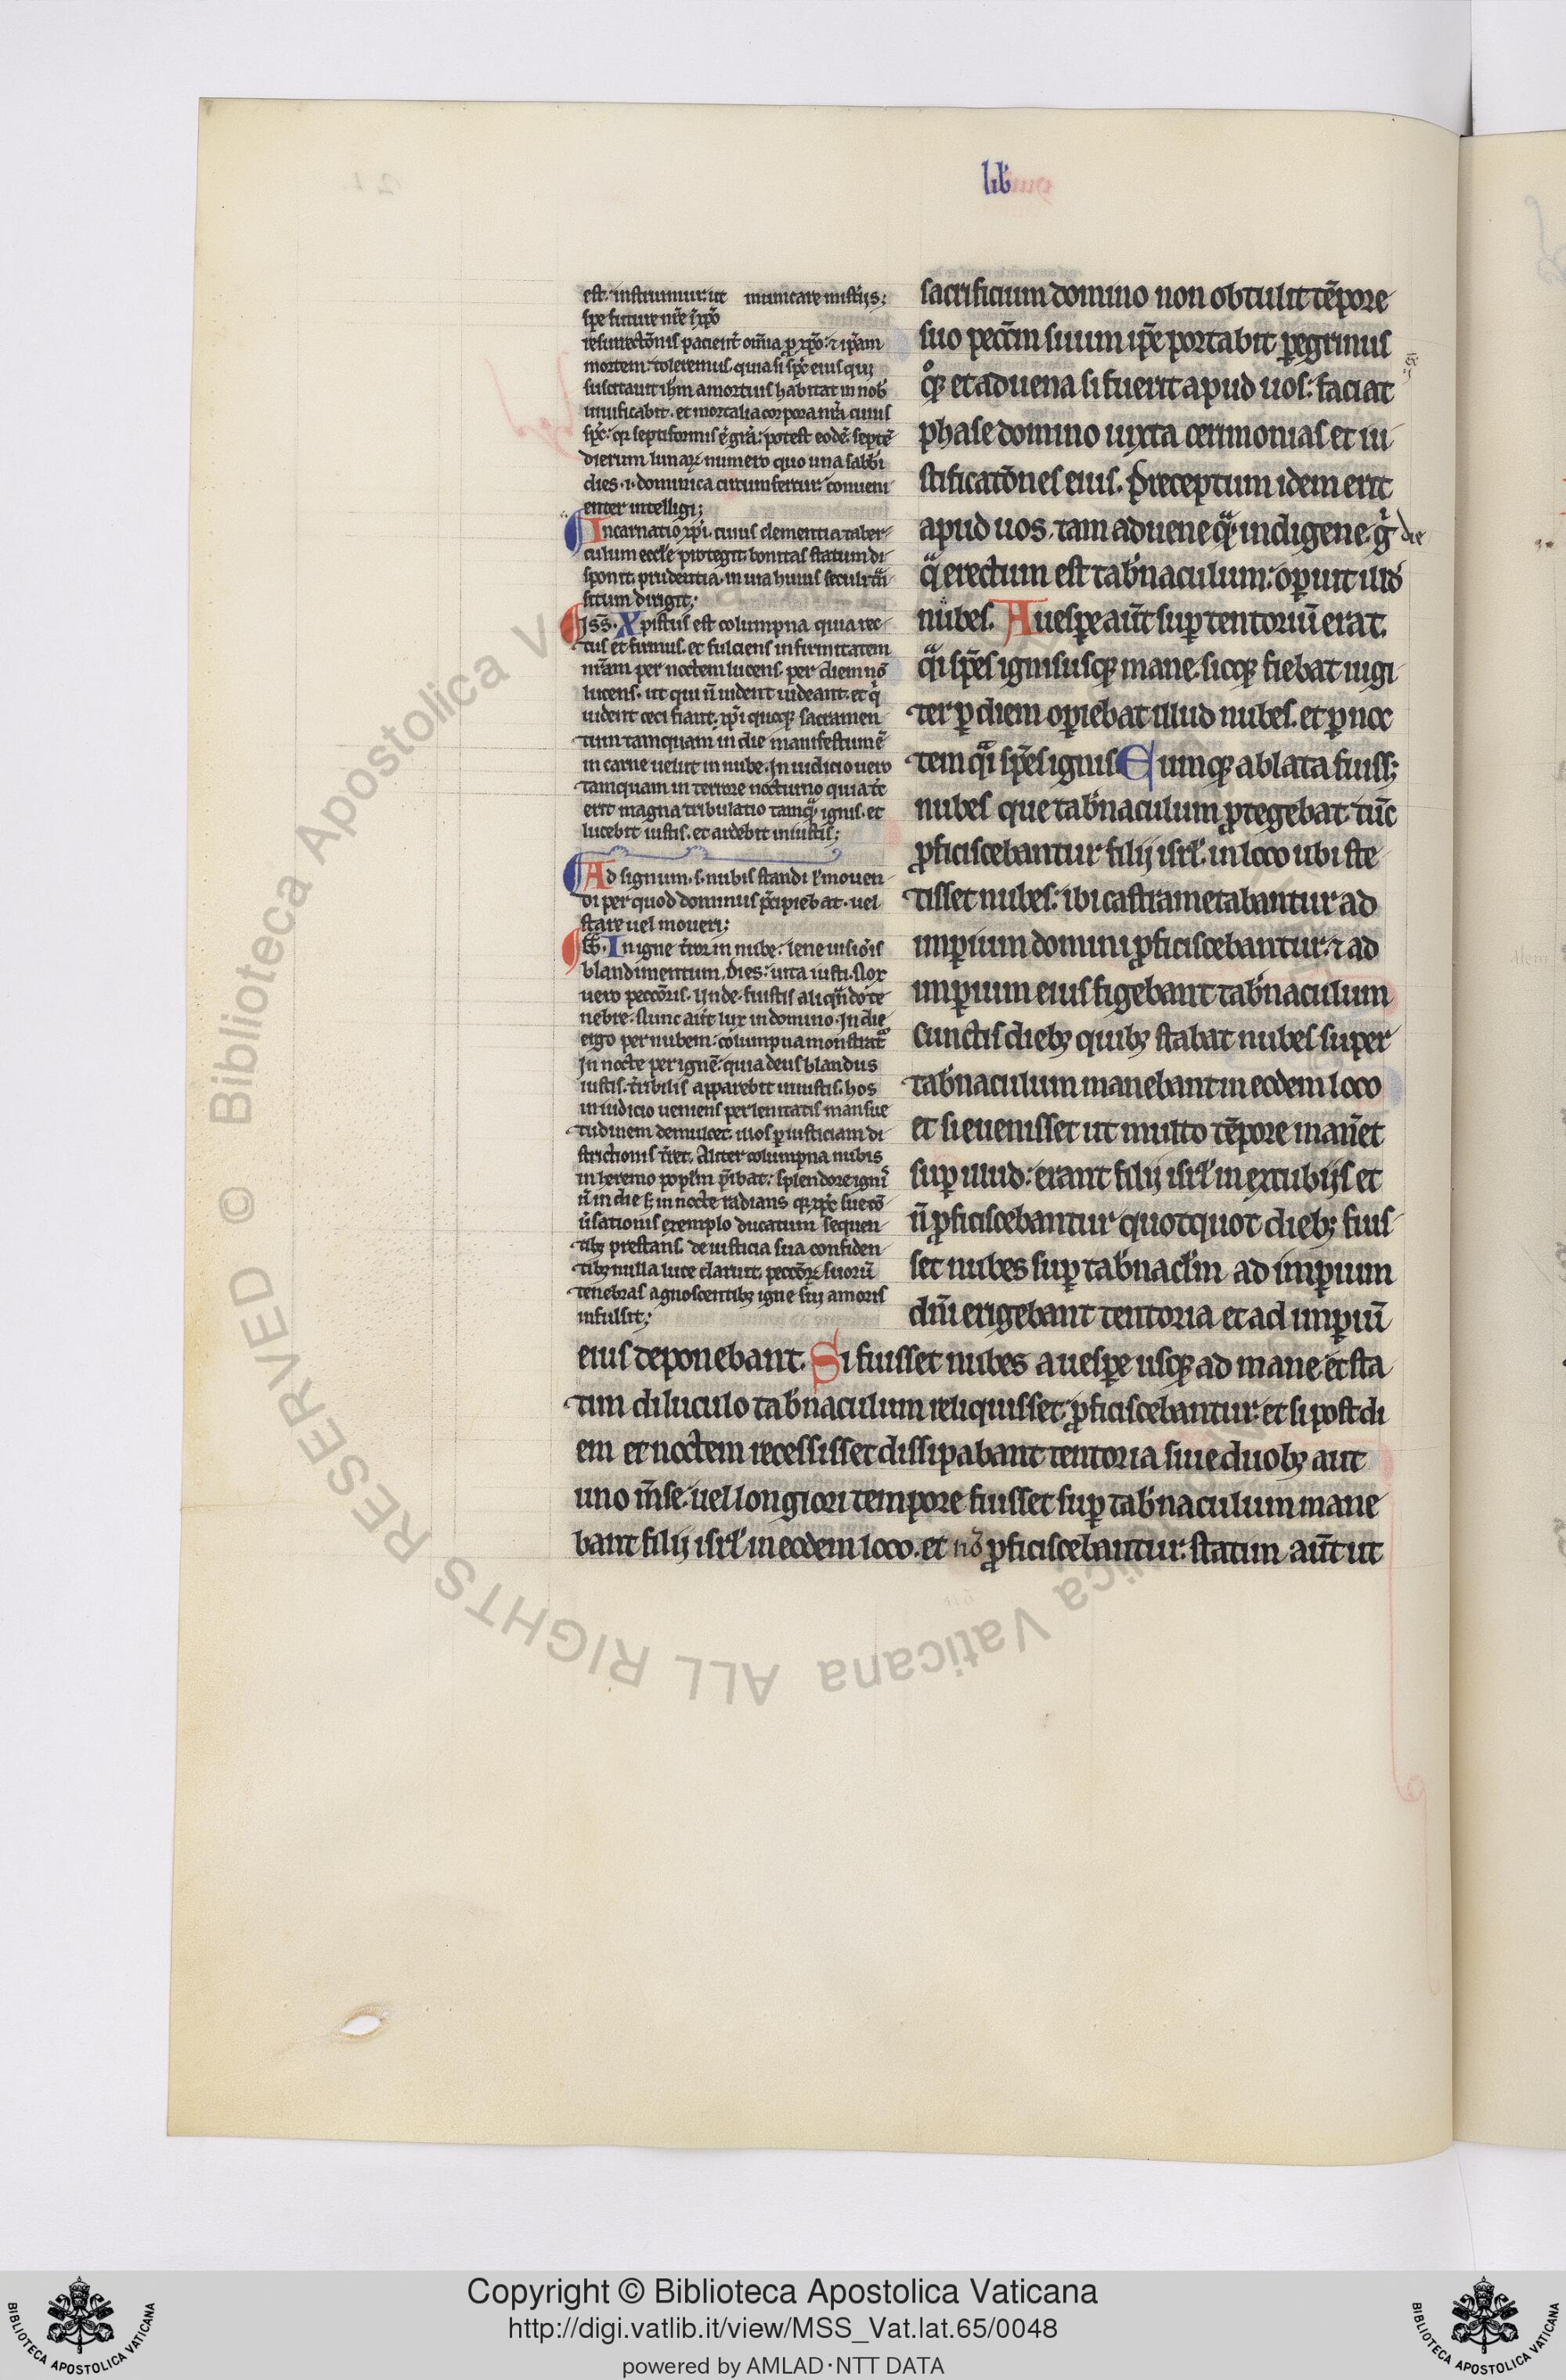 lib̄
est. instruimur: ut municare mist̄ijs;
spe future n̄re ī xp̄o
resurrectōnis pacient̄ om̄ia ꝓ xp̄o: ⁊ ip̄am
mortem: toleremus. quia si sp̄c eius qui
suscitauit ih̄m a mortuis habitat in nob̄
uiuificabit. et mortalia corpora nr̄a cuius
sp̄c: qꝛ septiformis ē gr̄a: potest eodē. septē
dierum lunaꝝ numero quo una sabb̄i
dies .i. dominica circumfertur: conueni
enter intelligi;
Incarnatio xp̄i. cuius clementia taber
culum eccl̄e protegit. bonitas statum di
sponit. prudentia. in uia huius seculi t̄n
situm dirigit;
Iss̄. Xpistus est columpna quia rec
tus et firmus. et fulciens infirmitatem
nr̄am per noctem lucens. per diem nō
lucens. ut qui ū uident uideant. et q̄
uident ceci fiant. xp̄i quoqꝫ sacramen
tum tamquam in die manifestum ē
in carne uelut in nube. In iudicio uero
tamquam in terrore nocturno quia tc̄
erit magna tribulatio tamqͣ ignis. et
lucebit iustis. et ardebit iniustis;
Ad signum .s. nubis standi ł mouen
di per quod dominus p̄cipiebat. uel
stare uel moueri;
In igne t̄ror in nube: lene uisiōis
blandimentum. Dies: uita iusti. Nox
uero peccōris. Unde. fuistis aliqn̄do te
nebre. Nunc aūt lux in domino. In die
ergo per nubem: columpna monstrat᷑
In nocte per ignē: quia deus blandus
iustis. t̄ribilis apparebit iniustis. hos
in iudicio ueniens per lenitatis mansue
tudinem demulcet. illos ꝑ iusticiam di
strictionis t̄ret. Aliter columpna nubis
in heremo popl̄m p̄ibat: splendore igni
ū in die s; in nocte radians qꝛ xp̄c sue cō
ūsationis exemplo ducatum sequen
tibꝫ prestans. de iusticia sua confiden
tibꝫ nulla luce claruit. peccōꝝ suorū
tenebras agnoscentibꝫ igne sui amoris
infulsit;
sacrificium domino non obtulit tēpore
suo peccm̄ suum ip̄e portabit ꝑegrinus
qͦꝫ et aduena si fuerit apud uos: faciat
phase domino iuxta cerimonias et iu
stificatōnes eius. Preceptum idem erit
apud uos. tam aduene qͣ indigene. g̊ die
qͣ erectum est tab̄naculum: oꝑuit illud
nubes. A uesꝑe aūt suꝑ tentoriū erat.
qͣi sp̄es ignis usqꝫ mane. sicqꝫ fiebat iugi
ter ꝑ diem oꝑiebat illud nubes. et ꝑ noc
tem qͣi sp̄es ignis Cumqꝫ ablata fuiss;
nubes que tab̄naculum ꝓtegebat tūc
ꝓficiscebantur filij isrl̄. in loco ubi ste
tisset nubes: ibi castrametabantur ad
imꝑium domini ꝓficiscebantur: ⁊ ad
imꝑium eius figebant tab̄naculum
cunctis diebꝫ quibꝫ stabat nubes super
tab̄naculum manebant in eodem loco
et si euenisset ut multo tēpore man̄et
suꝑ illud: erant filij isrl̄ in excubijs et
ū ꝓficiscebantur quotquot diebꝫ fuis
set nubes suꝑ tab̄nacl̄m ad imꝑium
dn̄i erigebant tentoria et ad imꝑiū
eius deponebant. Si fuisset nubes a uesꝑe usqꝫ ad mane et sta
tim diluculo tab̄naculum reliquisset. ꝓficiscebantur: et si post di
em et noctem recessisset dissipabant tentoria siue duobꝫ aut
uno m̄se. uel longiori tempore fuisset suꝑ tab̄naculum mane
bant filij isrl̄ in eodem loco. et nō ꝓficiscebantur. statim aūt ut
Biblioteca Apostolica Vaticana ALL RIGHTS RESERVED ©
Copyright © Biblioteca Apostolica Vaticana
http://digi.vatlib.it/view/MSS_Vat.lat.65/0048
powered by AMLAD·NTT DATA
BIBLIOTECA APOSTOLICA VATICANA
BIBLIOTECA APOSTOLICA VATICANA